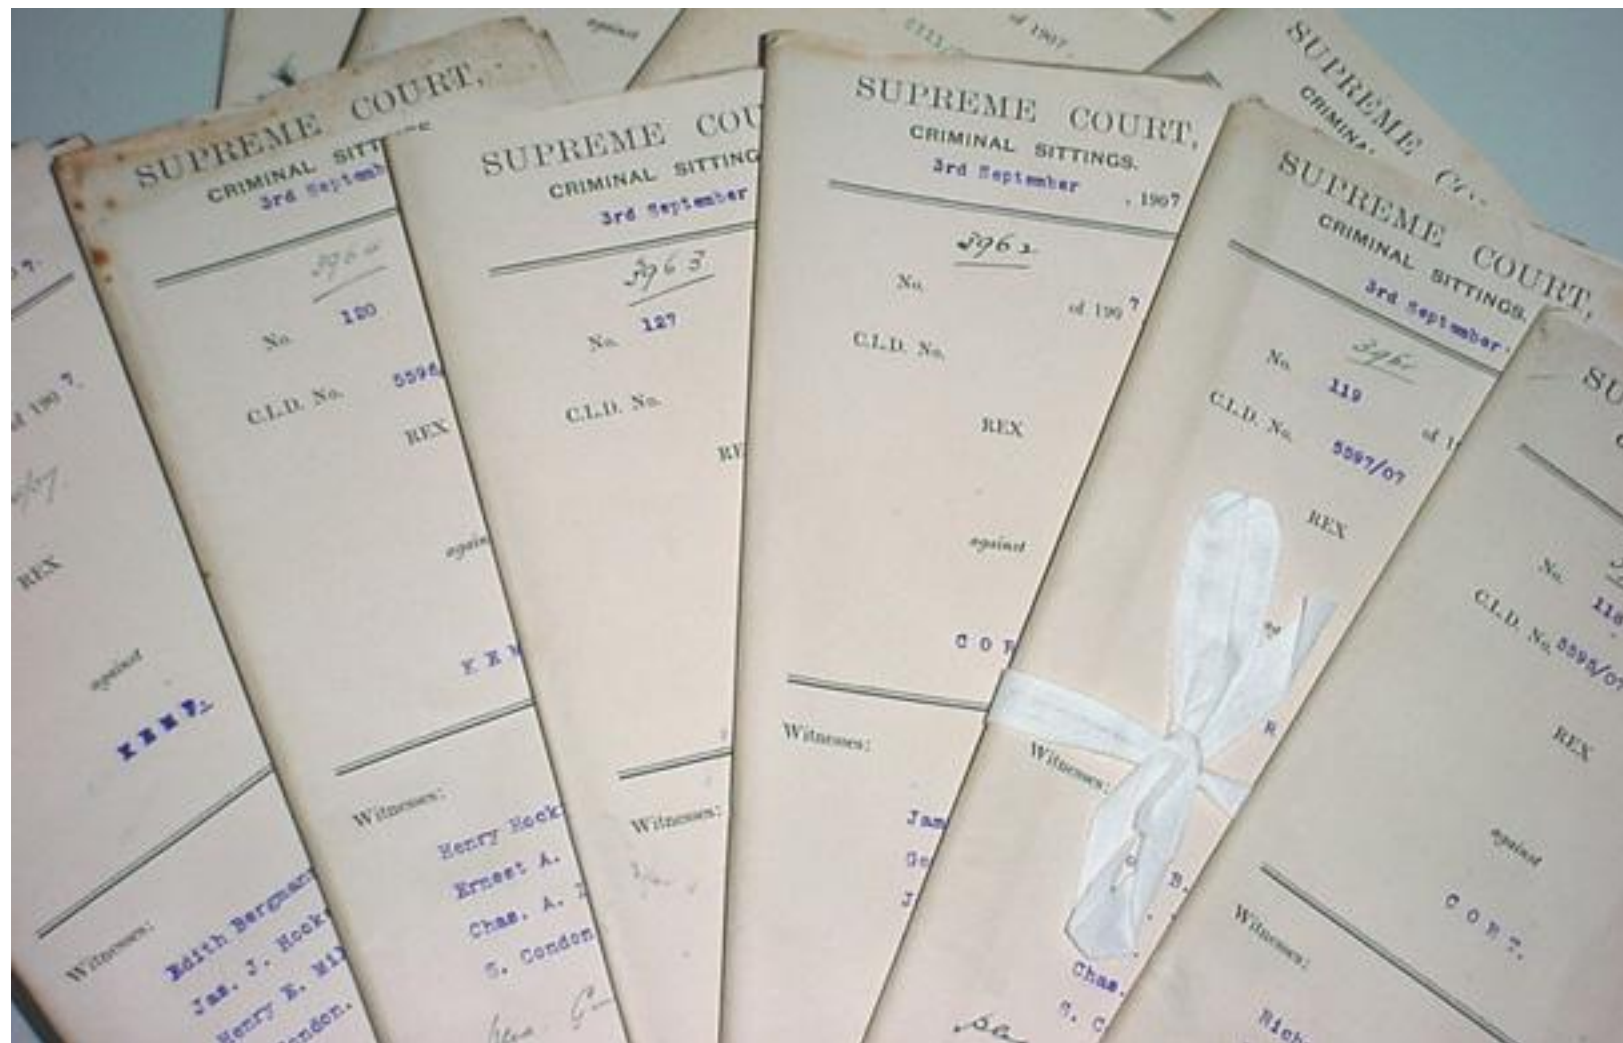 against
of 1907
SUPREME
CRIMINAL
7.
of 1907.
REX
against
KEMP.
Witnesses:
Edith Bergman
Jas. J. Hock
Henry E.
SUPREME COURT,
CRIMINAL SITT
3rd Septemb
No. 120
C.L.D. No. 5598
REX
again
KEM
Witnesses:
Henry Hock
Ernest A.
Chas. A.
S. Condon
SUPREME COU
CRIMINAL SITTING
3rd September
3963
No. 127
C.L.D. No.
RE
Witnesses:
SUPREME COURT,
CRIMINAL SITTINGS.
3rd September , 1907
3962
No. of 1907
C.L.D. No.
REX
against
COR
Witnesses:
Jam
Ge
J
SUPREME COURT,
CRIMINAL SITTINGS.
3rd September
3961
No. 119 of 1
C.L.D. No. 5597/07
REX
R
Witnesses:
B.
Chas.
S. C
SU
No. 118
C.L.D. No. 5595/07
REX
against
CORT.
Witnesses:
Rich